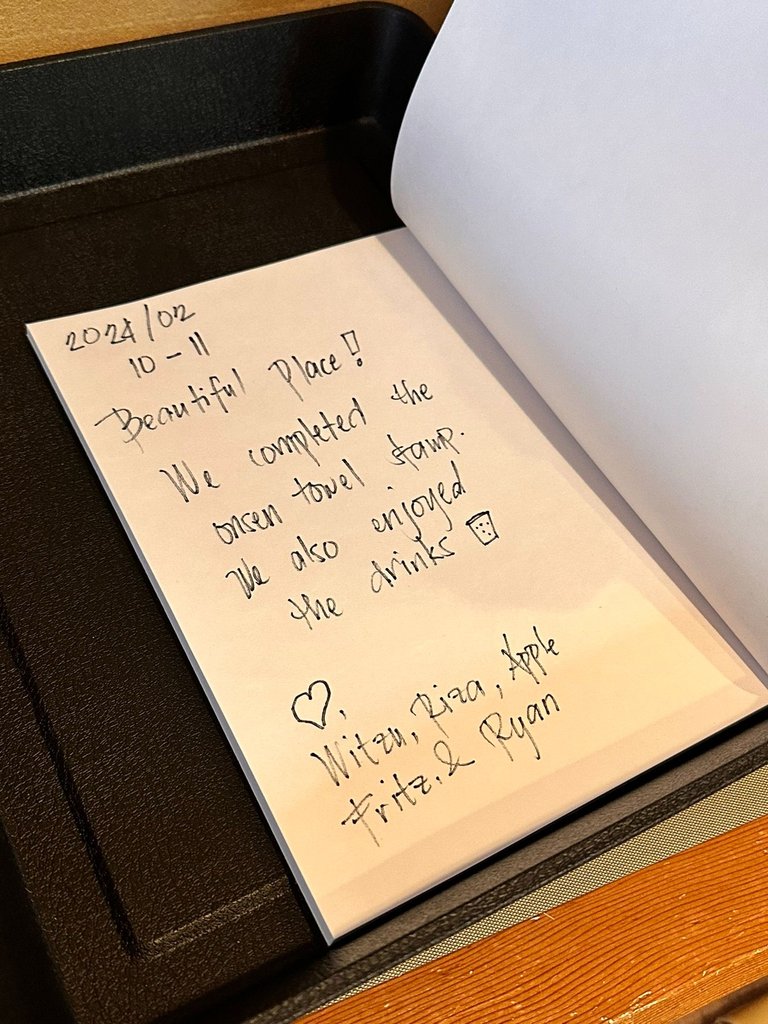 2024/02
10-11
Beautiful Place!
We completed the
onsen towel stamp.
We also enjoyed
the drinks
♡,
Witzu, Riza, Apple
Fritz, & Ryan